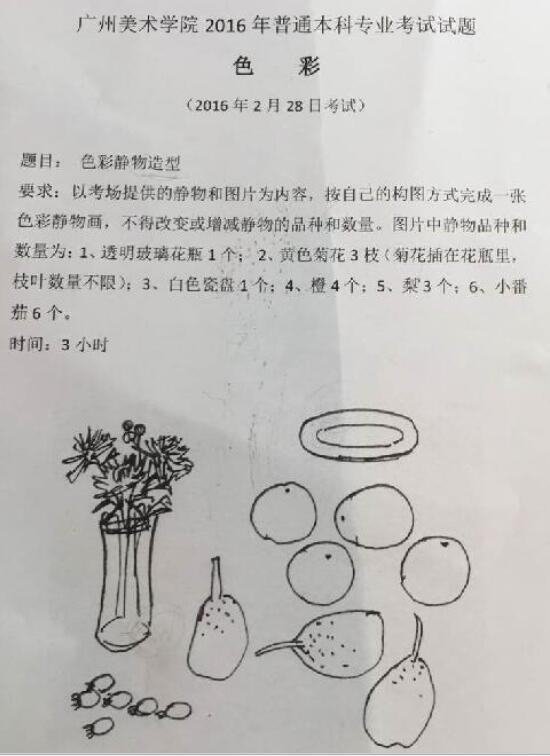 广州美术学院 2016 年普通本科专业考试试题
色 彩
（2016 年 2 月 28 日考试）
题目： 色彩静物造型
要求：以考场提供的静物和图片为内容，按自己的构图方式完成一张
色彩静物画，不得改变或增减静物的品种和数量。图片中静物品种和
数量为：1、透明玻璃花瓶 1 个；2、黄色菊花 3 枝（菊花插在花瓶里，
枝叶数量不限）；3、白色瓷盘 1 个；4、橙 4 个；5、梨 3 个；6、小番
茄 6 个。
时间：3 小时